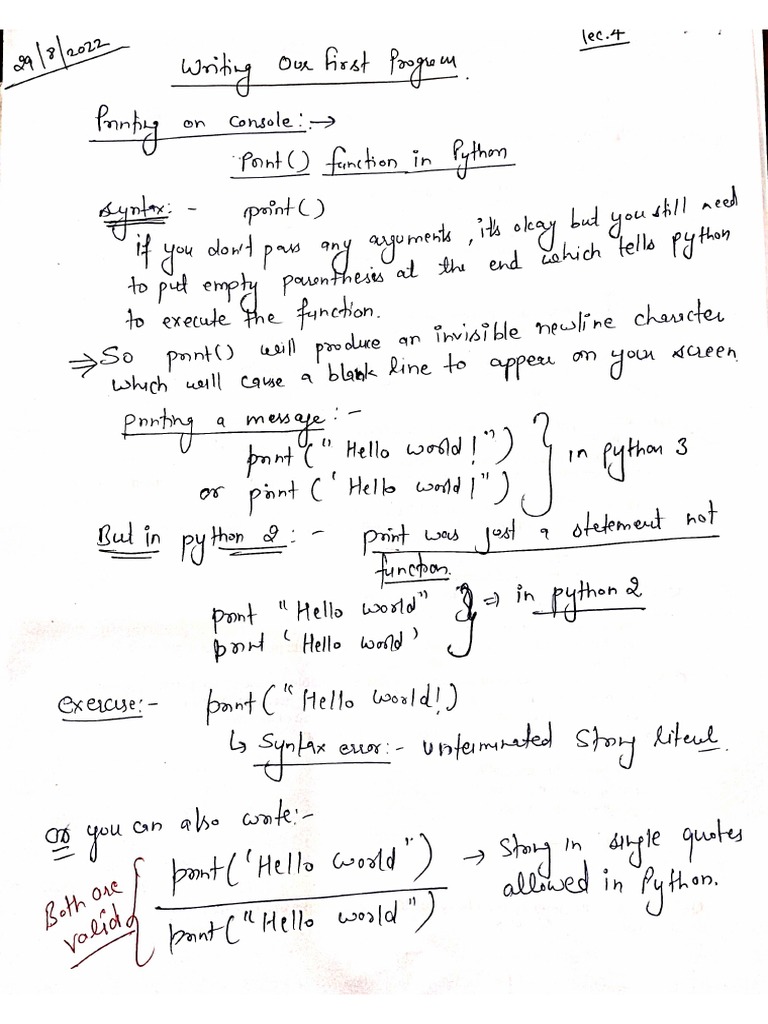 29/8/2022
lec.4
Writing Our First Program.
Printing on console:→
Print() function in Python
syntax:- print()
if you don't pass any arguments, it's okay but you still need
to put empty parenthesis at the end which tells python
to execute the function.
⇒ So print() will produce an invisible newline character
which will cause a blank line to appear on your screen.
Printing a message:-
print("Hello world!")
or print('Hello world!")
} in python 3
But in python 2:- print was just a statement not
function.
print "Hello world"
print 'Hello world'
} ⇒ in python 2
exercise:- print("Hello world!)
↳ Syntax error:- unterminated String literal.
OR you can also write:-
Both are
valid
print('Hello world")
print("Hello world")
→ String in single quotes
allowed in Python.